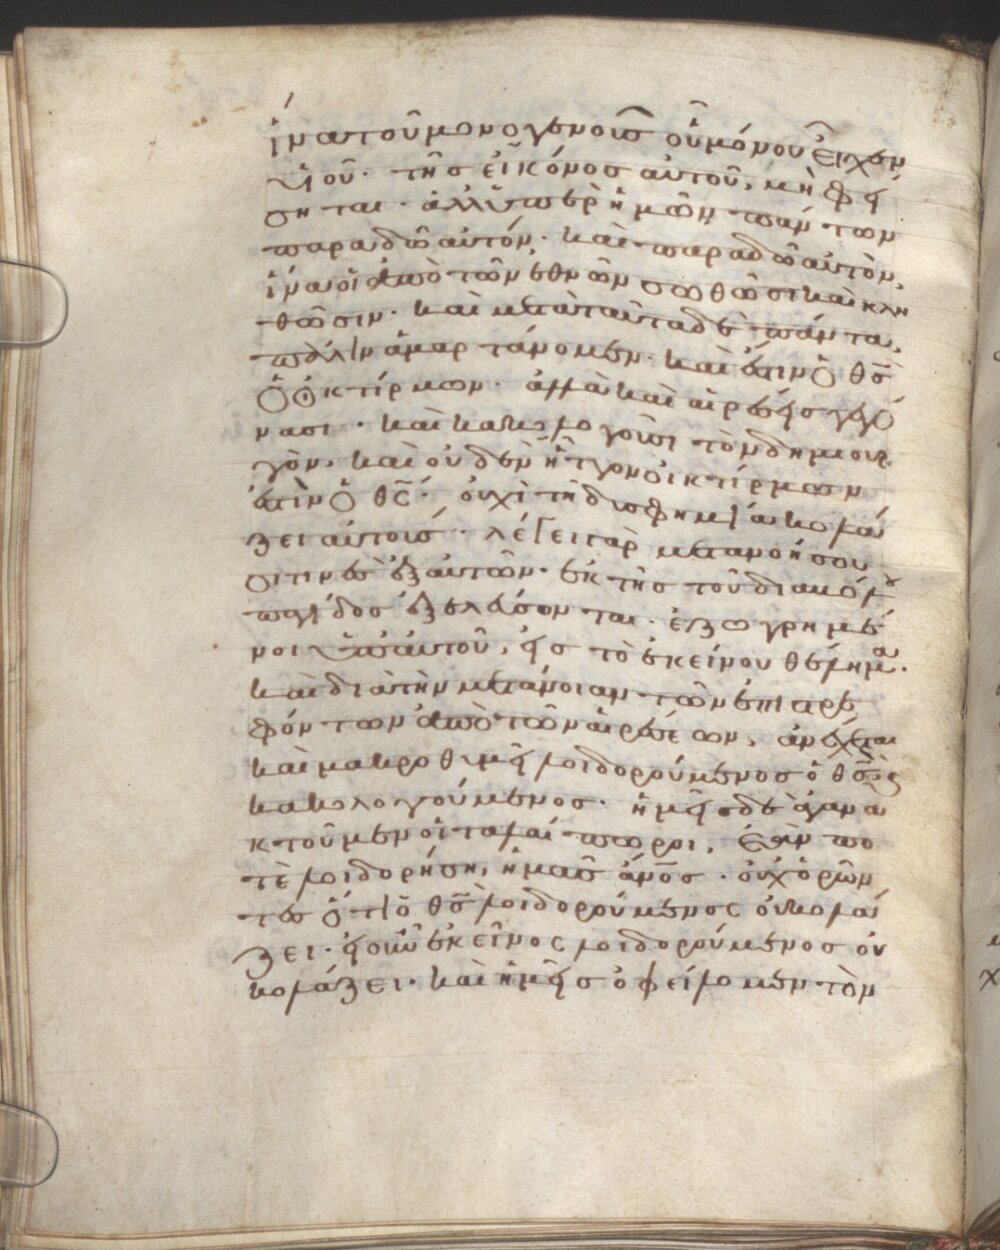 ἵνα τοῦ μονογενοῦς οὗ μόνου ἔχει
υἱοῦ· τῆς εἰκόνος αὐτοῦ, μὴ φεί
σηται· ἀλλ' ὑπὲρ ἡμῶν πάντων
παραδῶ αὐτόν· καὶ παραδῶ αὐτὸν,
ἵνα οἱ ἀπὸ τῶν ἐθνῶν σωθῶσι καὶ κλη
θῶσιν· καὶ μετὰ ταῦτα δὲ πάντα,
πάλιν ἁμαρτάνομεν· καὶ ἔστιν ὁ θς
ὁ οἰκτίρμων· ἀλλὰ καὶ αἱρέσεις γεγό
νασι· καὶ κακολογοῦσι τὸν δημιουρ
γὸν, καὶ οὐδὲν ἧττον οἰκτίρμων
ἐστὶν ὁ θς· οὐχὶ τῇ δυσφημίᾳ κολά
ζει αὐτούς· λέγει γὰρ μετανοήσου
οἵτινες ἐξ αὐτῶν· ἐκ τῆς τοῦ διαβόλου
παγίδος ἐξελεύσονται· ἐζωγρημέ
νοι ὑπ' αὐτοῦ, εἰς τὸ ἐκείνου θέλημα·
καὶ διὰ τὴν μετάνοιαν τῶν ἐπιστρε
φόντων ἀπὸ τῶν αἱρέσεων, ἀνέχεται
καὶ μακροθυμεῖ λοιδορούμενος ὁ θς καὶ
κακολογούμενος· ἡμεῖς δὲ ἀγανα
κτοῦμεν οἱ ταλαίπωροι, ἐάν πο
τε λοιδορήσῃ, ἡμᾶς ἄνος· οὐχ ὁρῶν
τες ὅτι ὁ θς λοιδορούμενος οὐ κολά
ζει· εἰ οὖν ἐκεῖνος λοιδορούμενος οὐ
κολάζει· καὶ ἡμεῖς ὀφείλομεν τὸν